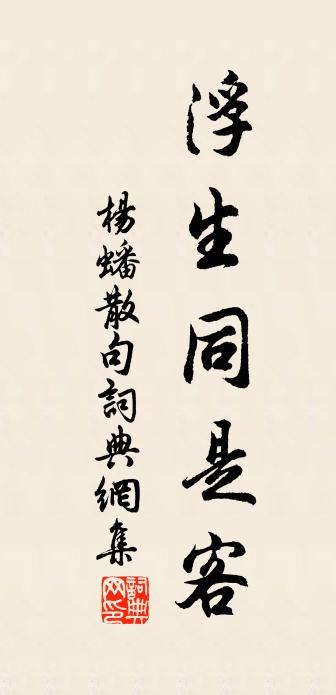 浮生同是客
楊蟠散句詞典網集
詞典網印